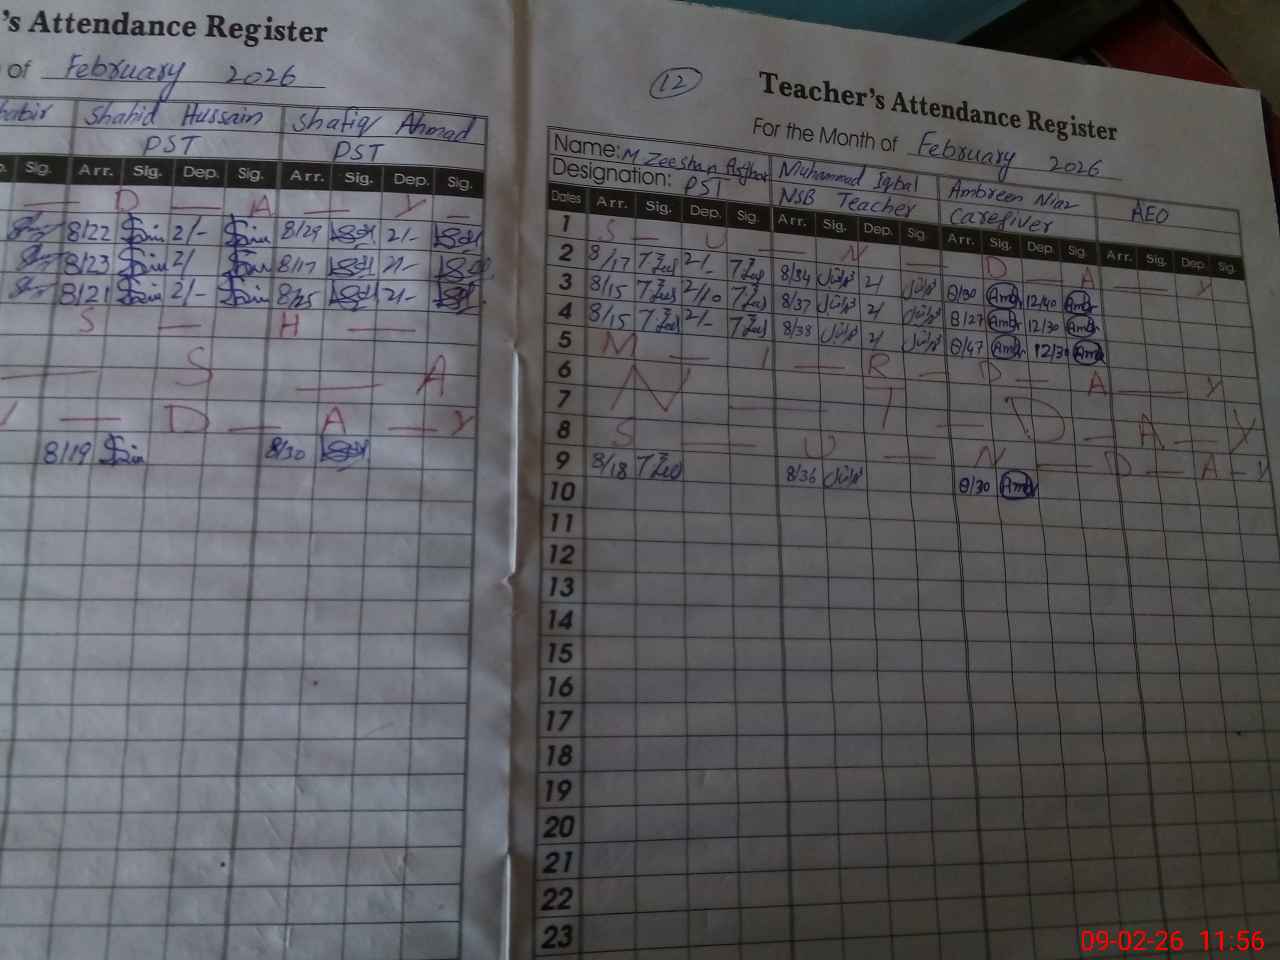 's Attendance Register
of February 2026
Shahid Hussain Shafiq Ahmad
PST PST
Sig. Arr. Sig. Dep. Sig. Arr. Sig. Dep. Sig.
D — A — Y —
8/22 2/- 8/29 2/-
8/23 2/ 8/17 2/-
8/21 2/- 8/25 2/-
S — H —
— S — A
— D — A — Y
8/19 8/30
12
Teacher's Attendance Register
For the Month of February 2026
Name: M Zeeshan Asghar Muhammad Iqbal Ambreen Niaz AEO
Designation: PST NSB Teacher Caregiver
Dates Arr. Sig. Dep. Sig. Arr. Sig. Dep. Sig. Arr. Sig. Dep. Sig. Arr. Sig. Dep. Sig.
1 S — U — N — D — A — Y
2 8/17 2/- 8/34 2/ 8/30 Amb 12/40 Amb
3 8/15 2/10 8/37 2/ 8/27 Amb 12/30 Amb
4 8/15 2/- 8/38 2/ 8/47 Amb 12/30 Amb
5 M — I — R — D — A — Y
6 N — — D — A — Y
7
8 S — U — N — D — A — Y
9 8/18 8/36 8/30 Amb
10
11
12
13
14
15
16
17
18
19
20
21
22
23
09-02-26 11:56